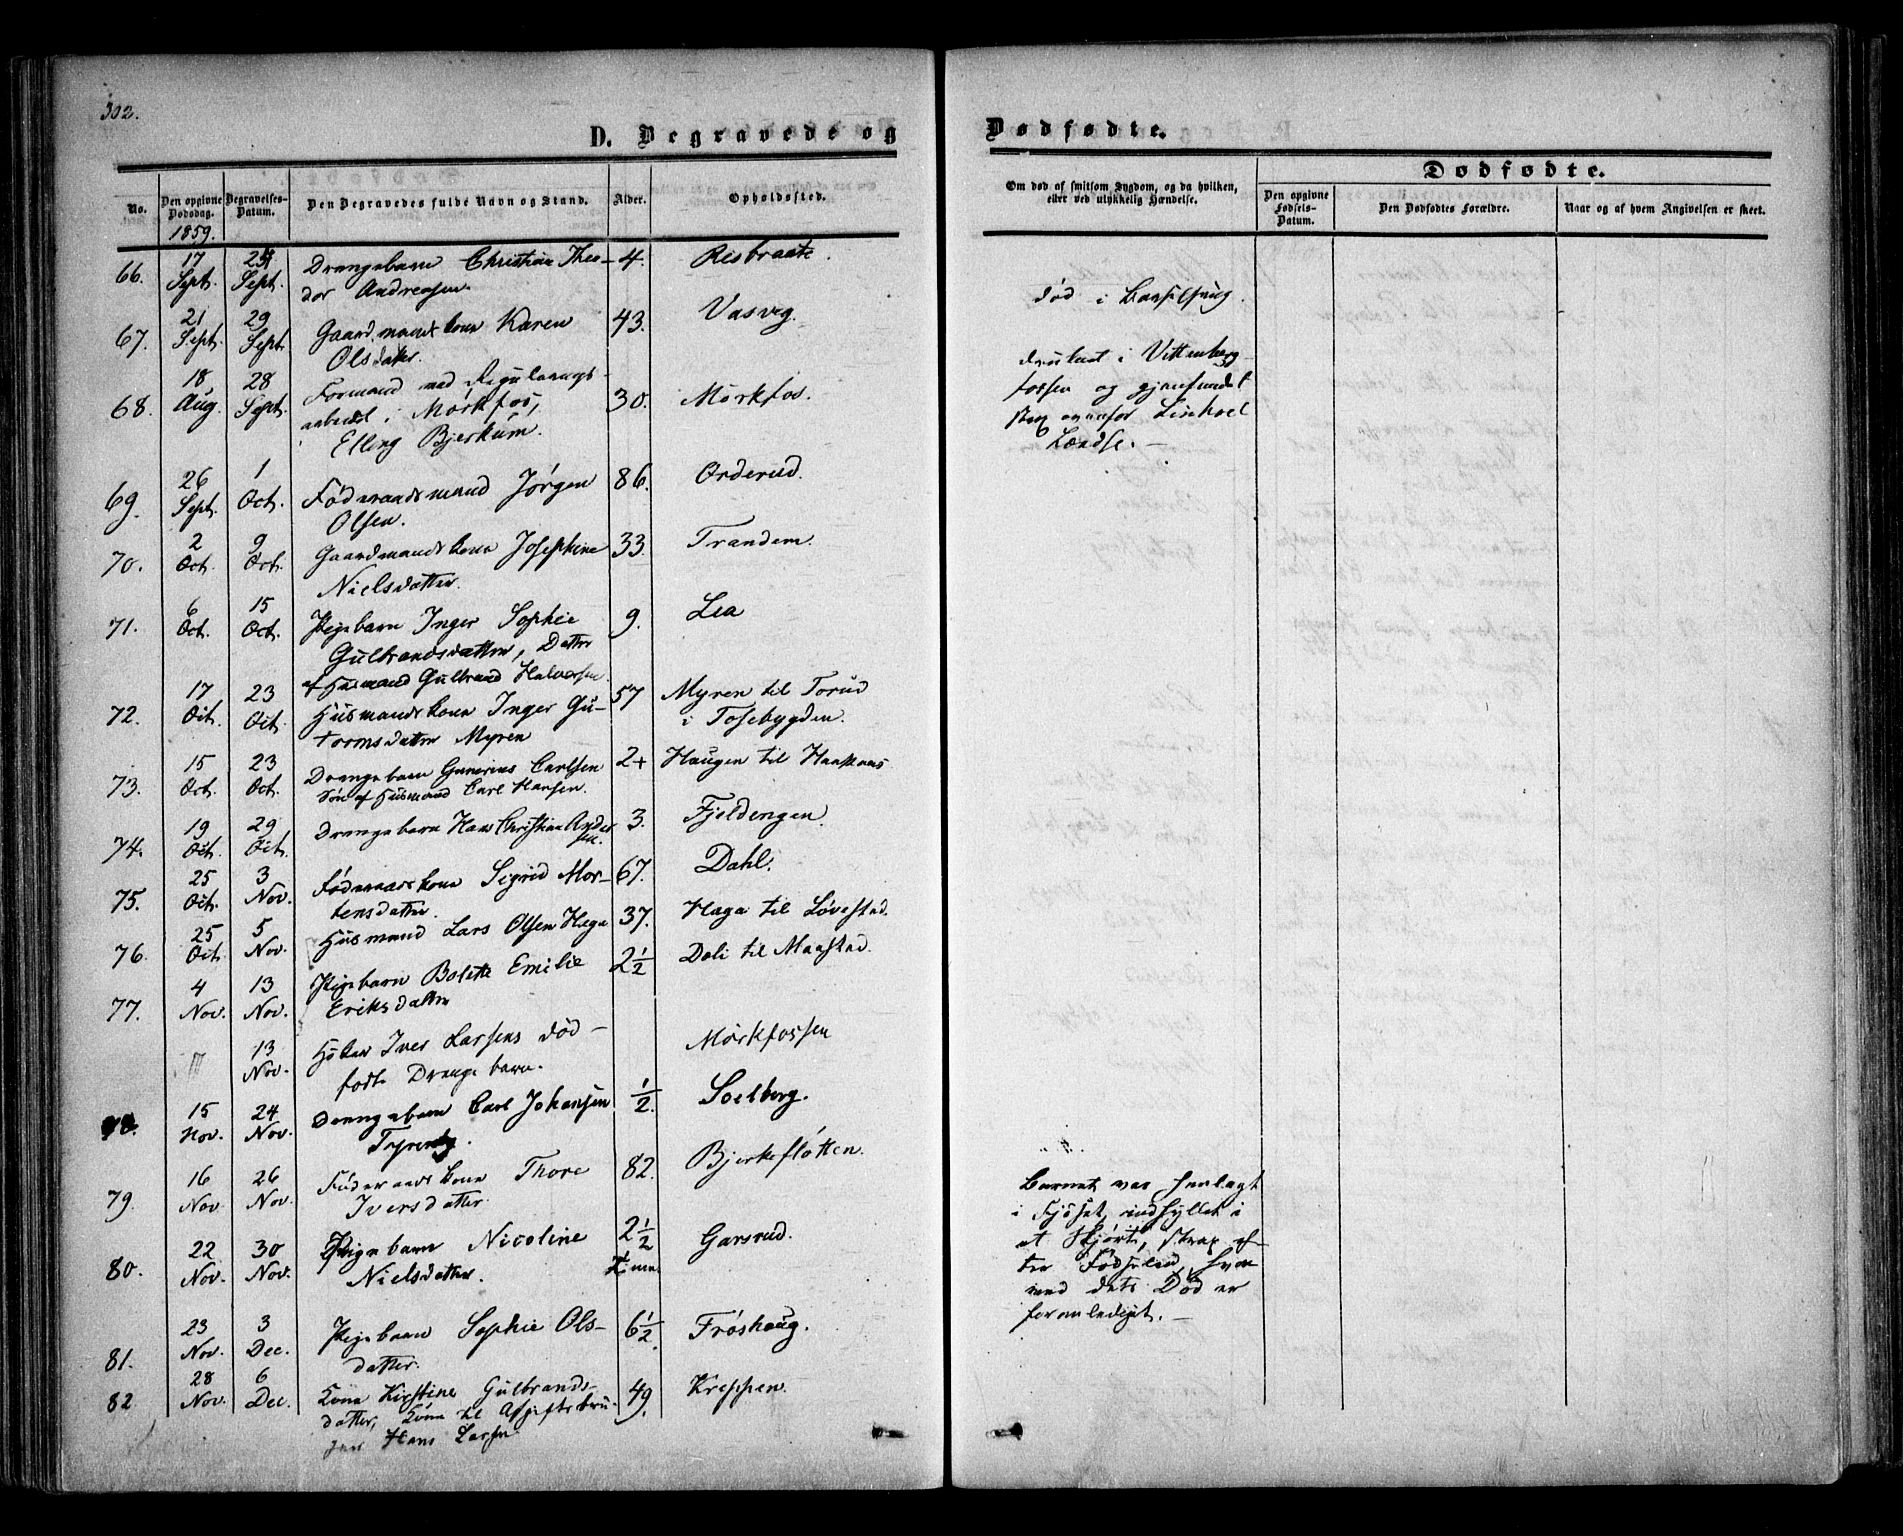 302.
D. Begravede og
Dødfødte.
No.
Den opgivne Dødsdag.
Begravelses-Datum.
Den Begravedes fulde Navn og Stand.
Alder.
Opholdssted.
Om død af smitsom Sygdom, og da hvilken,
eller ved ulykkelig Hændelse.
Dødfødte.
Den opgivne Fødsels-Datum.
Den Dødfødtes Forældre.
Naar og af hvem Angivelsen er skeet.
1859.
66. 17 Sept. Sept. Drengebarn Christian Theo- 4. Risbraate.
dor Andreasen.
67. 21 Sept. 29 Sept. Gaardmandskone Karen 43. Vasveg. død i Barselseng.
Olsdatter.
68. 18 Aug. 28 Sept. Formand ved Regulerings- 30. Mørkfos. druknet i Vittenberg-
arbeidet i Mørkfos, fossen og gjenfundet
Elling Bjerkum. strax ovenfor
Lændse. —
69. 26 Sept. 1 Oct. Føderaadsmand Jørgen 86. Orderud.
Olsen.
70. 2 Oct. 9 Oct. Gaardmandskone Josephine 33. Trandem.
Nielsdatter.
71. 6 Oct. 15 Oct. Pigebarn Inger Sophie 9. Lea
Gulbrandsdatter, Datter
af Husmand Gulbrand Halvorsen.
72. 17 Oct. 23 Oct. Husmandskone Inger Gu- 57 Myren til Torud
tormsdatter Myren i Tosebygden.
73. 15 Oct. 23 Oct. Drengebarn Gunerius Carlsen 2+ Haugen til Haaknæs
Søn af Husmand Carl Hansen.
74. 19 Oct. 29 Oct. Drengebarn Hans Christian Ander 3. Fjeldengen.
sen.
75. 25 Oct. 3 Nov. Føderaadskone Sigrid Mor- 67. Dahl.
tensdatter.
76. 25 Oct. 5 Nov. Husmand Lars Olsen Haga 37. Haga til Løvestad.
77. 4 Nov. 13 Nov. Pigebarn Bolette Emilie 2½ Dali til Maastad.
Eriksdatter
13 Nov. Iver Larsens død- Mørkfossen
født Drengebarn.
78. 15 Nov. 24 Nov. Drengebarn Carl Johansen ½. Soelberg.
79. 16 Nov. 26 Nov. Føderaadskone Thore 82. Bjerkefløtten. Barnet var henlagt
Iversdatter. i Fjøset, indhyllet i
80. 22 Nov. 30 Nov. Pigebarn Nicoline 2½ Garsrud. et Skjørt, strax ef-
Nielsdatter. ter Fødselen, hvor
ved dets Død er
foranlediget. —
81. 23 Nov. 3 Dec. Pigebarn Sophie Ols- 6½. Frøshaug.
datter.
82 28 Nov. 6 Dec. Kone Kirstine Gulbrands- 49. Kreppen.
datter, Kone til Afgiftsbru-
ger Hans Larsen